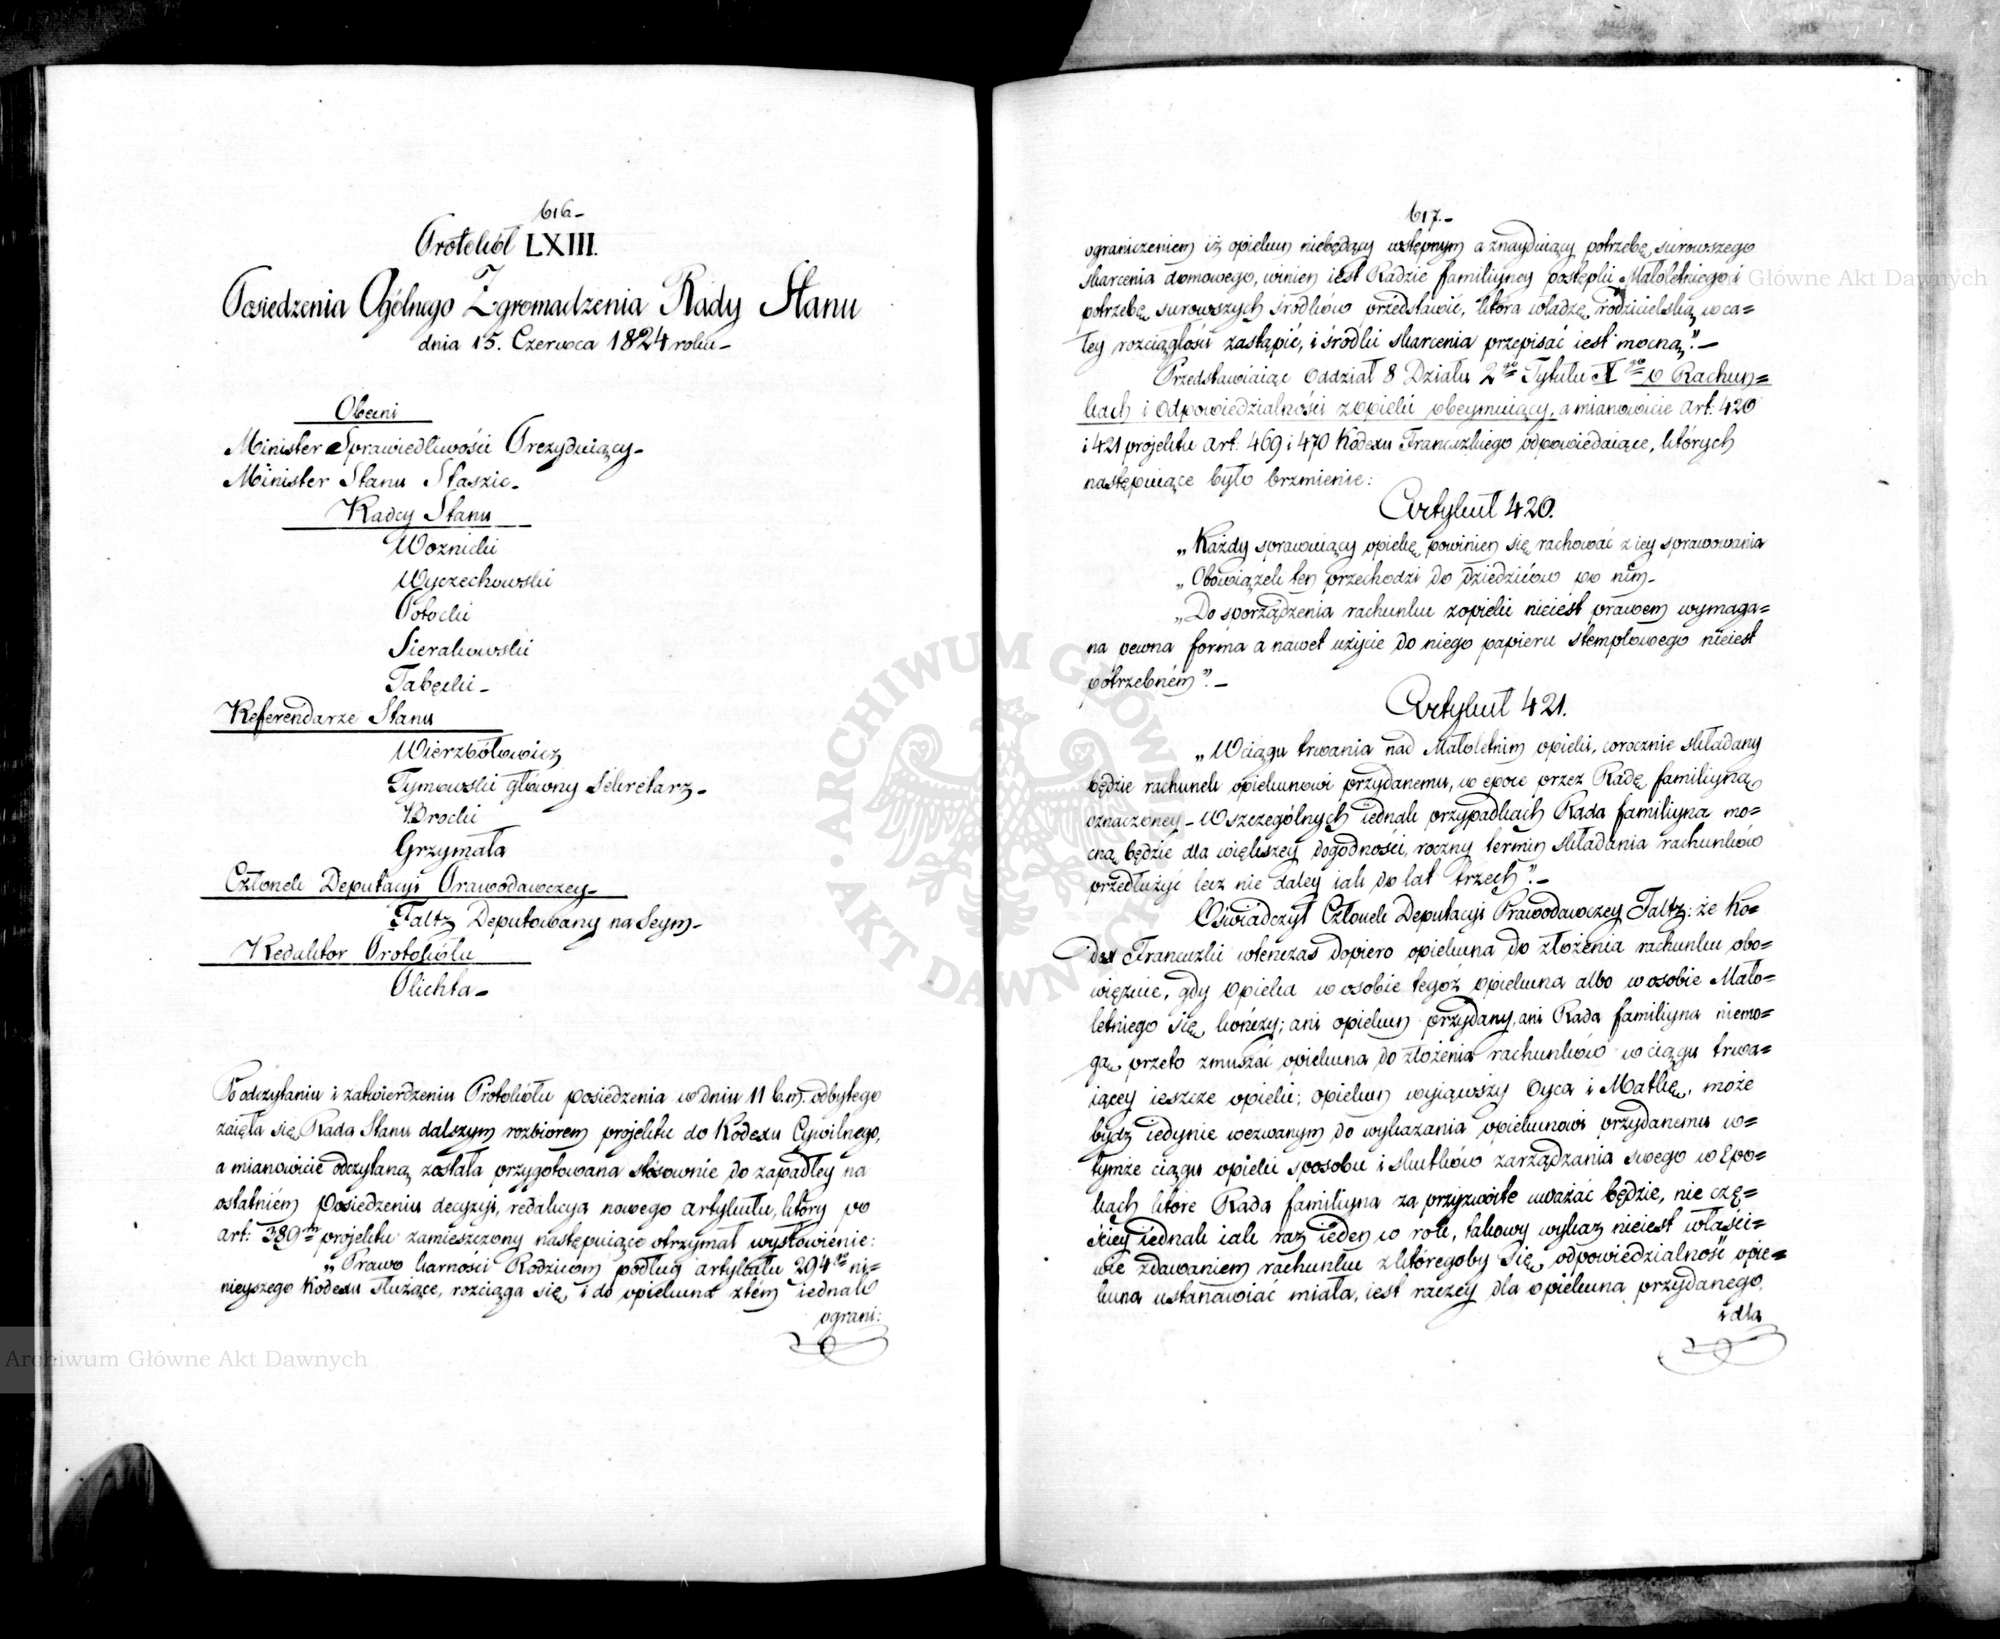 616.
Protokół LXIII.
Posiedzenia Ogólnego Zgromadzenia Rady Stanu
dnia 15. Czerwca 1824 roku
Obecni
Minister Sprawiedliwości Prezyduiący
Minister Stanu Staszic
Radcy Stanu
Woznicki
Wyczechowski
Potocki
Sierakowski
Tabęcki
Referendarze Stanu
Wierzbołowicz
Tymowski główny Sekretarz
Brocki
Grzymała
Członek Deputacyi Prawodawczey
Faltz Deputowany na Seym
Redaktor Protokółu
Plichta
Po odczytaniu i zatwierdzeniu Protokółu posiedzenia w dniu 11 b.m. odbytego
zaięła się Rada Stanu dalszym rozbiorem projektu do Kodexu Cywilnego,
a mianowicie odczytaną została przygotowana stósownie do zapadłey na
ostatniém Posiedzeniu decyzyi, redakcya nowego artykułu, który po
art: 389 projektu zamieszczony następuiące otrzymał wysłowienie:
„Prawo karności Rodzicom podług artykułu 294 ni=
nieyszego Kodexu służące, rozciąga się, i do opiekuna z tém iednak
ograni:
617.
ograniczeniem iż opiekun niebędący wstępnym a znayduiący potrzebę surowszego
skarcenia domowego, winien iest Radzie familiyney postępki Małoletniego i
potrzebę surowszych środków przedstawić, która władzę rodzicielską w ca=
łey rozciągłości zastąpić, i środki skarcenia przepisać iest mocną”.
Przedstawiaiąc Oddział 8 Działu 2go Tytułu X go o Rachun=
kach i odpowiedzialności z opieki obeymuiący, a mianowicie art: 420
i 421 projektu art. 469 i 470 Kodexu Francuzkiego odpowiedaiące, których
następuiące było brzmienie:
Artykuł 420.
„Każdy sprawuiący opiekę powinien się rachować z iey sprawowania
„Obowiązek ten przechodzi do dziedziców po nim
„Do sporządzenia rachunku z opieki nieiest prawem wymaga=
na pewna forma a nawet użycie do niego papieru stemplowego nieiest
potrzebném”.
Artykuł 421.
„W ciągu trwania nad Małoletnim opieki, corocznie składany
będzie rachunek opiekunowi przydanemu, w epoce przez Radę familiyną
oznaczoney. W szczególnych iednak przypadkach Rada familiyna mo=
cną będzie dla większey dogodności, roczny termin składania rachunków
przedłużyć lecz nie daley iak do lat trzech”.
Oświadczył Członek Deputacyi Prawodawczey Faltz: że Ko=
dex Francuzki wtenczas dopiero opiekuna do złożenia rachunku obo=
więzuie, gdy opieka w osobie tegoż opiekuna albo w osobie Mało=
letniego się kończy; ani opiekun przydany, ani Rada familiyna niemo=
gą przeto zmuszać opiekuna do złożenia rachunków w ciągu trwa=
iącey ieszcze opieki; opiekun wyiąwszy Oyca i Matkę, może
bydz iedynie wezwanym do wykazania opiekunowi przydanemu w=
tymże ciągu opieki sposobu i skutków zarządzania swego w Epo=
kach które Rada familiyna za przyzwoite uważać będzie, nie czę=
ściey iednak iak raz ieden w rok, takowy wykaz nieiest właści=
wie zdawaniem rachunku z któregoby się odpowiedzialność opie=
kuna ustanawiać miała, iest raczey dla opiekuna przydanego,
i dla
Archiwum Główne Akt Dawnych
Główne Akt Dawnych
ARCHIWUM GŁÓWNE AKT DAWNYCH